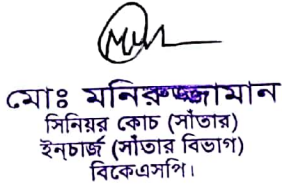 মোঃ মনিরুজ্জামান
সিনিয়র কোচ (সাঁতার)
ইনচার্জ (সাঁতার বিভাগ)
বিকেএসপি।